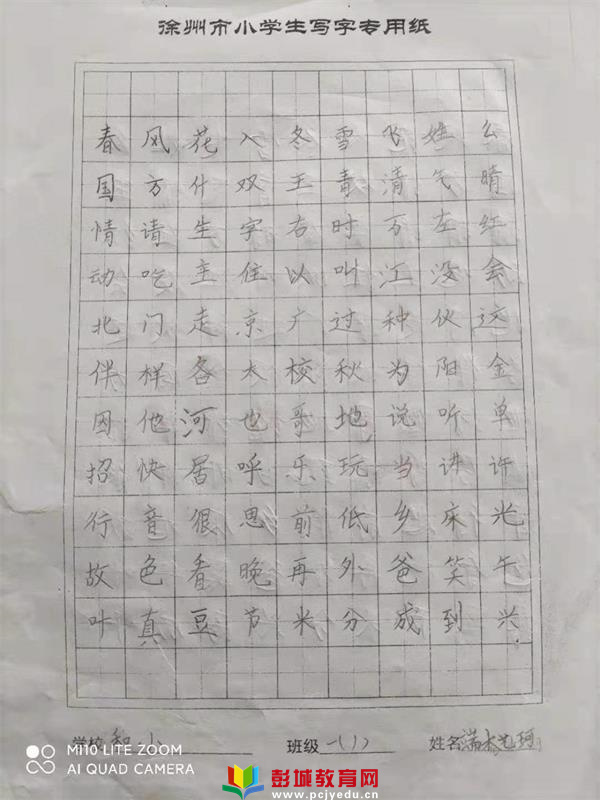 徐州市小学生写字专用纸
春风花入冬雪飞姓么
国方什双王青清气晴
情请生字右时万左红
动吃主住以叫江没会
北门走京广过种伙这
伴样各太校秋为阳金
因他河也哥地说听单
招快居呼乐玩当讲许
行音很思前低乡床光
故色看晚再外爸笑午
叶真豆节米分成到兴
学校 和小 班级 一(1) 姓名
MI 10 LITE ZOOM
AI QUAD CAMERA
彭城教育网
www.pcjyedu.cn